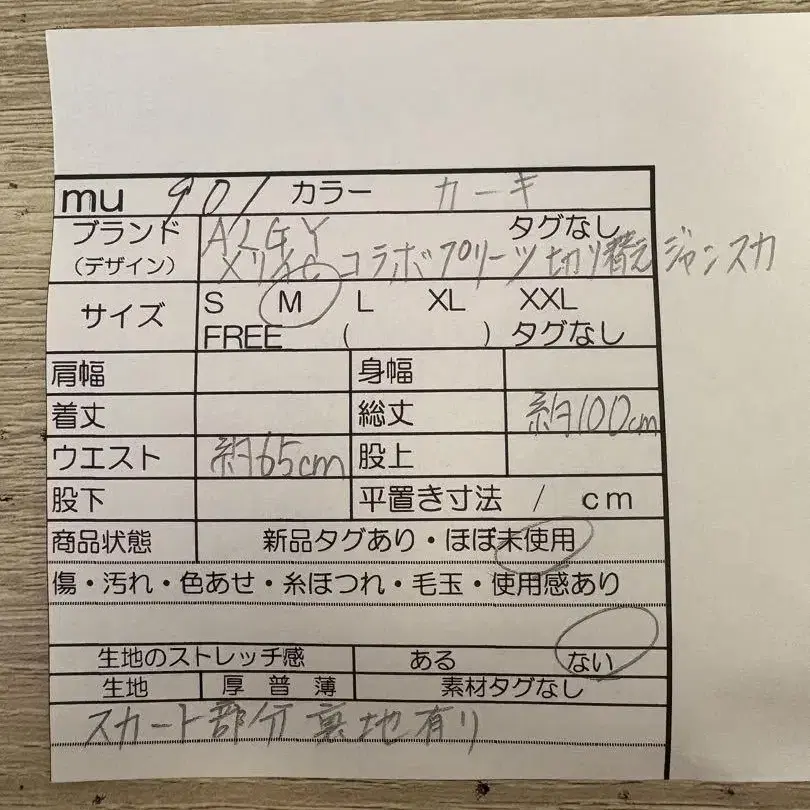 mu 901 カラー カーキ
ブランド ALGY タグなし
(デザイン) メリオセ コラボプリーツ切り替えジャンスカ
サイズ S M L XL XXL
FREE ( ) タグなし
肩幅 身幅
着丈 総丈 約100cm
ウエスト 約65cm 股上
股下 平置き寸法 / cm
商品状態 新品タグあり・ほぼ未使用
傷・汚れ・色あせ・糸ほつれ・毛玉・使用感あり
生地のストレッチ感 ある ない
生地 厚 普 薄 素材タグなし
スカート部分裏地有り